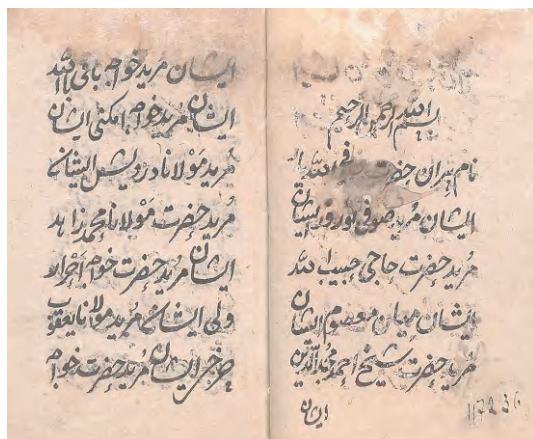 بسم الله الرحمن الرحیم
نام پیران حضرت
ایشان مرید صوفی نوروز ایشان
مرید حضرت حاجی حبیب الله
ایشان میان معصوم ایشان
مرید حضرت شیخ احمد مجدالدین
ایشان
ایشان مرید خواجه باقی بالله
ایشان مرید خواجه امکنی ایشان
مرید مولانا درویش ایشان
مرید حضرت مولانا محمد زاهد
ایشان مرید حضرت خواجه احرار
ولی ایشان مرید مولانا یعقوب
چرخی ایشان مرید حضرت خواجه